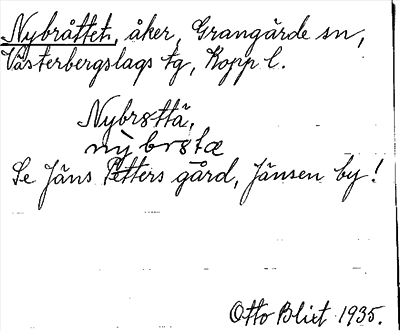 Nybråttet, åker, Grangärde sn,
Västerbergslags tg, Kopp l.
Nybrøttä,
ny̆ brøtæ
Se Jäns Petters gård, Jänsen by!
Otto Blixt 1935.